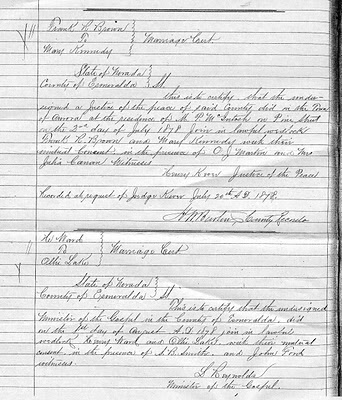 Frank R. Brown
To } Marriage Cert.
Mary Kennedy
State of Nevada
County of Esmeralda } SS
This is to certify that the under-
signed a Justice of the peace of said County did in the Town
of Aurora at the residence of M. P. on Pine Street
on the 2nd day of July 1878 Join in lawful wedlock
Frank R. Brown and Mary Kennedy with their
mutual Consent, in the presence of O. J. Martin and Mrs
Julia Witnesses
Justice of the Peace
Recorded at request of Judge July 20th A.D. 1878.
County Recorder
Hy Ward
To } Marriage Cert
Ollie Lake
State of Nevada
County of Esmeralda } SS
This is to certify that the undersigned
Minister of the Gospel in the County of Esmeralda, did
on the 1st day of August A.D. 1878 join in lawful
wedlock Henry Ward and Ollie Lake with their mutual
consent, in the presence of S. B. Smith and John Ford
witnesses.
Reynolds
Minister of the Gospel.